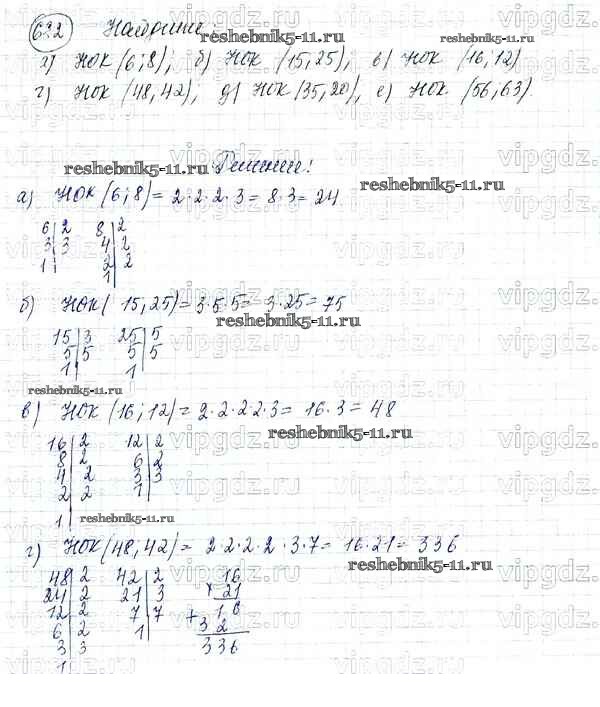 632 Найдите:
а) НОК (6;8); б) НОК (15,25), в) НОК (16,12)
г) НОК (48,42); д) НОК (35,20), е) НОК (56,63).
Решение!
reshebnik5-11.ru
а) НОК (6;8) = 2·2·2·3 = 8·3 = 24.
reshebnik5-11.ru
6|2 8|2
3|3 4|2
1| 2|2
1
б) НОК (15,25) = 3·5·5 = 3·25 = 75
reshebnik5-11.ru
15|3 25|5
5|5 5|5
1 1
reshebnik5-11.ru
в) НОК (16;12) = 2·2·2·2·3 = 16·3 = 48
reshebnik5-11.ru
16|2 12|2
8|2 6|2
4|2 3|3
2|2 1
1| reshebnik5-11.ru
г) НОК (48,42) = 2·2·2·2·3·7 = 16·21 = 336
reshebnik5-11.ru
48|2 42|2 16
24|2 21|3 × 21
12|2 7|7 + 16
6|2 1 32
3|3 336
1
vipgdz.ru